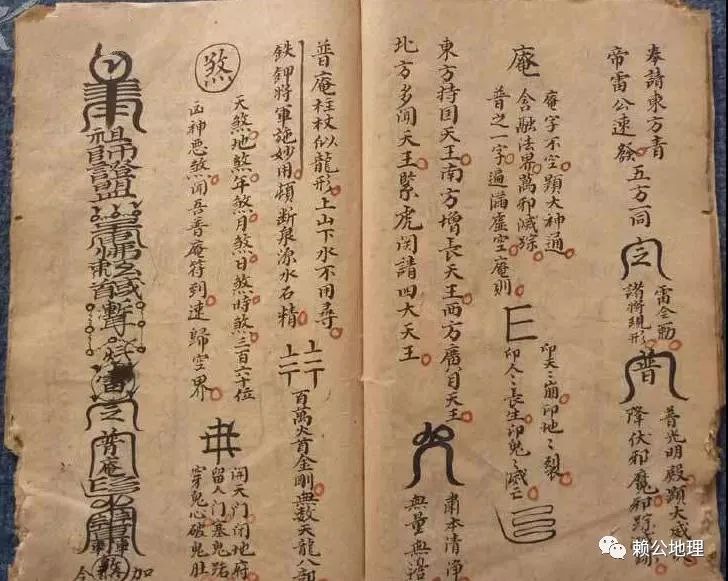 奉請東方青
帝雷公速發五方一同
雷令勅
諸將現形
普
普光明殿顯大威
降伏邪魔邪踪
庵
庵字不空顯大神通
含融法界萬邪滅踪
普之一字遍滿虛空庵則
印天天崩印地地裂
印人人長生印鬼鬼滅亡
東方持囯天王南方增長天王西方廣目天王
北方多聞天王緊虎関請四大天王
肅本清淨
無量無
普庵柱杖似龍形上山下水不用尋
鉄鉀將軍施妙用頓断泉源水石精
百萬火首金剛無数天龍八部
煞
天煞地煞年煞月煞日煞時煞三百六十位
凶神悪煞聞吾普庵符到速歸空界
開天門閉地府
留人門塞鬼路
穿鬼心破鬼肚
祖師證盟
普庵
賴公地理